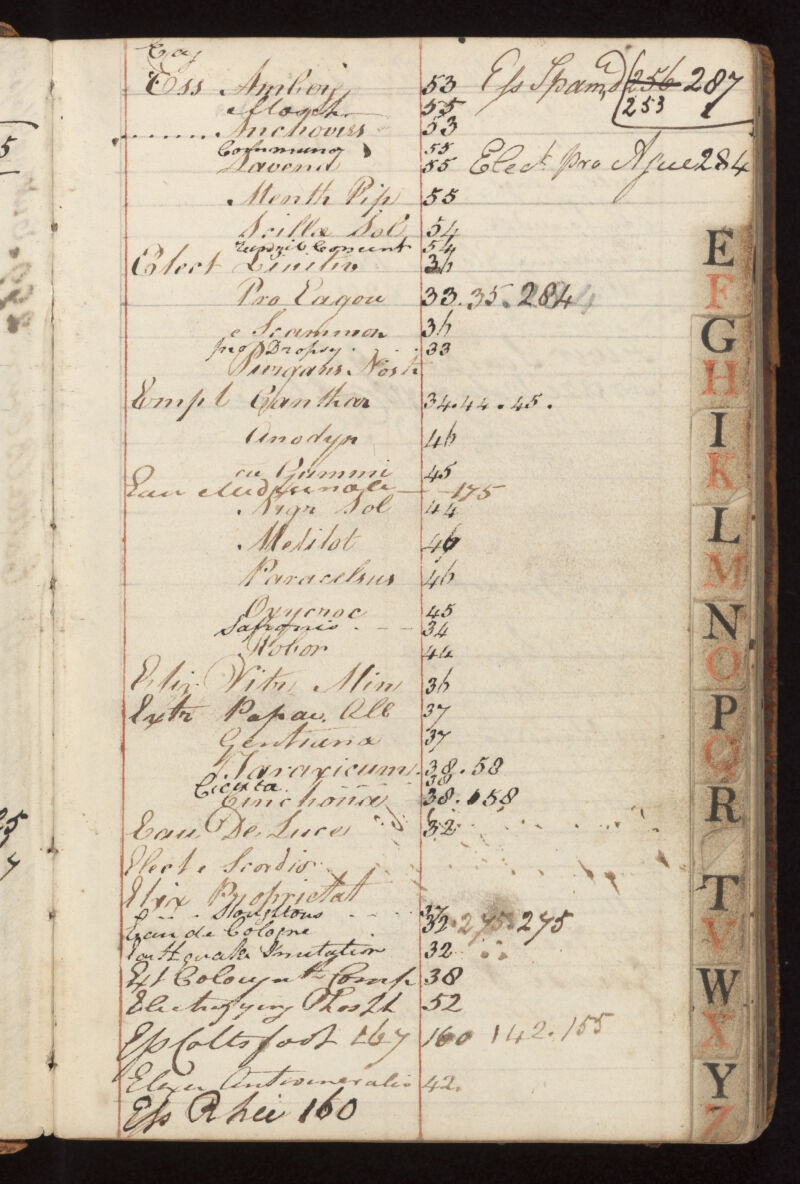 Ess Ambery 53 Ess Spam 256 287
e Mosch 55 253 1
Anchovies 53
Communo 55
Lavend 55 Elect pro Ague 284
Menth Pip 55
Scillæ Sol 54
54
Elect Linitiv 36
Pro Eagou 33.35.284
e Scammon 36
pro Dropsy 33
Purgans Nost
Empl Canthar 34.44.45.
Anodyn 46
cu Gummi 45
Eau Medicinale 175
Nigr Sol 44
Melilot 46
Paracelsus 46
Oxycroc 45
Saponis 34
Robor 44
Elix Vitr Min 36
Extr Papav. Alb 37
Gentiana 37
Taraxicum 38.58
Cicuta 38
Cinchona 38.158
Eau De Luce 32
Elect e Scordio
Elix Proprietat
Stoughtons 37
Eau de Cologne 32.275.275
Earthquake Imitation 32
Ext Colocynth Comp 38
Electrifying Phosph 52
Ess Coltsfoot 167 160 142.155
Elixir Antiveneralis 42.
Ess Rhei 160
E
F
G
H
I
K
L
M
N
O
P
Q
R
T
V
W
X
Y
Z
5
25
7